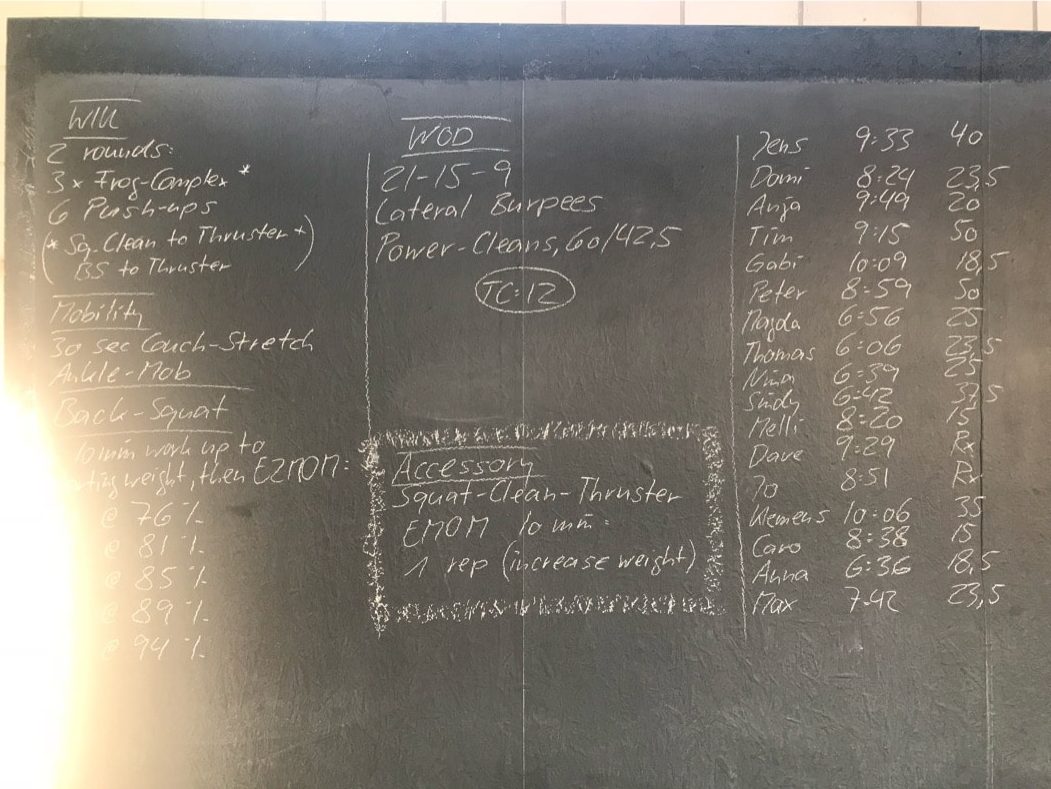 WU
2 rounds:
3x Frog-Complex *
6 Push-ups
(* Sq. Clean to Thruster +
BS to Thruster)
Mobility
30 sec Couch-Stretch
Ankle-Mob
Back-Squat
10 min work up to
weight, then E2MOM:
@ 76 %
@ 81 %
@ 85 %
@ 89 %
@ 94 %
WOD
21-15-9
Lateral Burpees
Power-Cleans, 60/42,5
TC: 12
Accessory
Squat-Clean-Thruster
EMOM 10 min:
1 rep (increase weight)
Jens 9:33 40
Domi 8:24 23,5
Anja 9:49 20
Tim 9:15 50
Gabi 10:09 18,5
Peter 8:59 50
Magda 6:56 25
Thomas 6:06 23,5
Nina 6:39 25
6:42 37,5
Melli 8:20 15
Dave 9:29 Rx
Jo 8:51 Rx
Klemens 10:06 35
Caro 8:38 15
Anna 6:36 18,5
Max 7:42 23,5